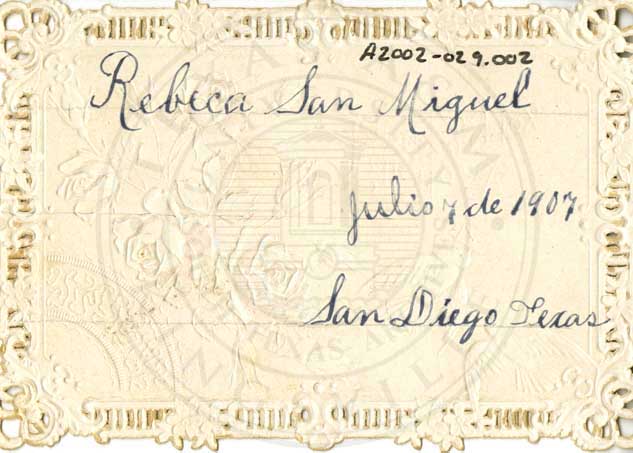 A2002-029.002
Rebeca San Miguel
Julio 7 de 1907
San Diego Texas